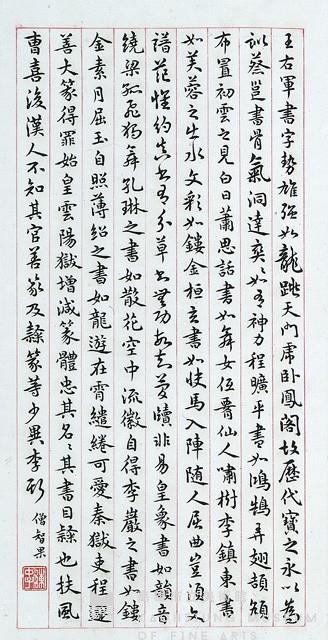 王右軍書字勢雄強如龍跳天門虎卧鳳閣故歷代寶之永以為
訓蔡邕書骨氣洞達奕〻如有神力程曠平書如鴻鵠弄翅頡頏
布置初雲之見白日蕭思話書如舞女低腰仙人嘯樹李鎮東書
如芙蓉之出水文彩如鏤金桓玄書如快馬入陣隨人屈曲豈須文
譜范懷約真書有分草書無功故知簡牘非易皇象書如韻音
繞梁孤飛獨舞孔琳之書如散花空中流徽自得李巖之書如鏤
金素月屈玉自照薄紹之書如龍遊在霄繾綣可愛秦獄吏程邈
善大篆得罪始皇雲陽獄增減篆體忠其名〻其書曰隸也扶風
曹喜後漢人不知其官善篆及隸篆等少異李斯
僧智果
OF FINE ARTS